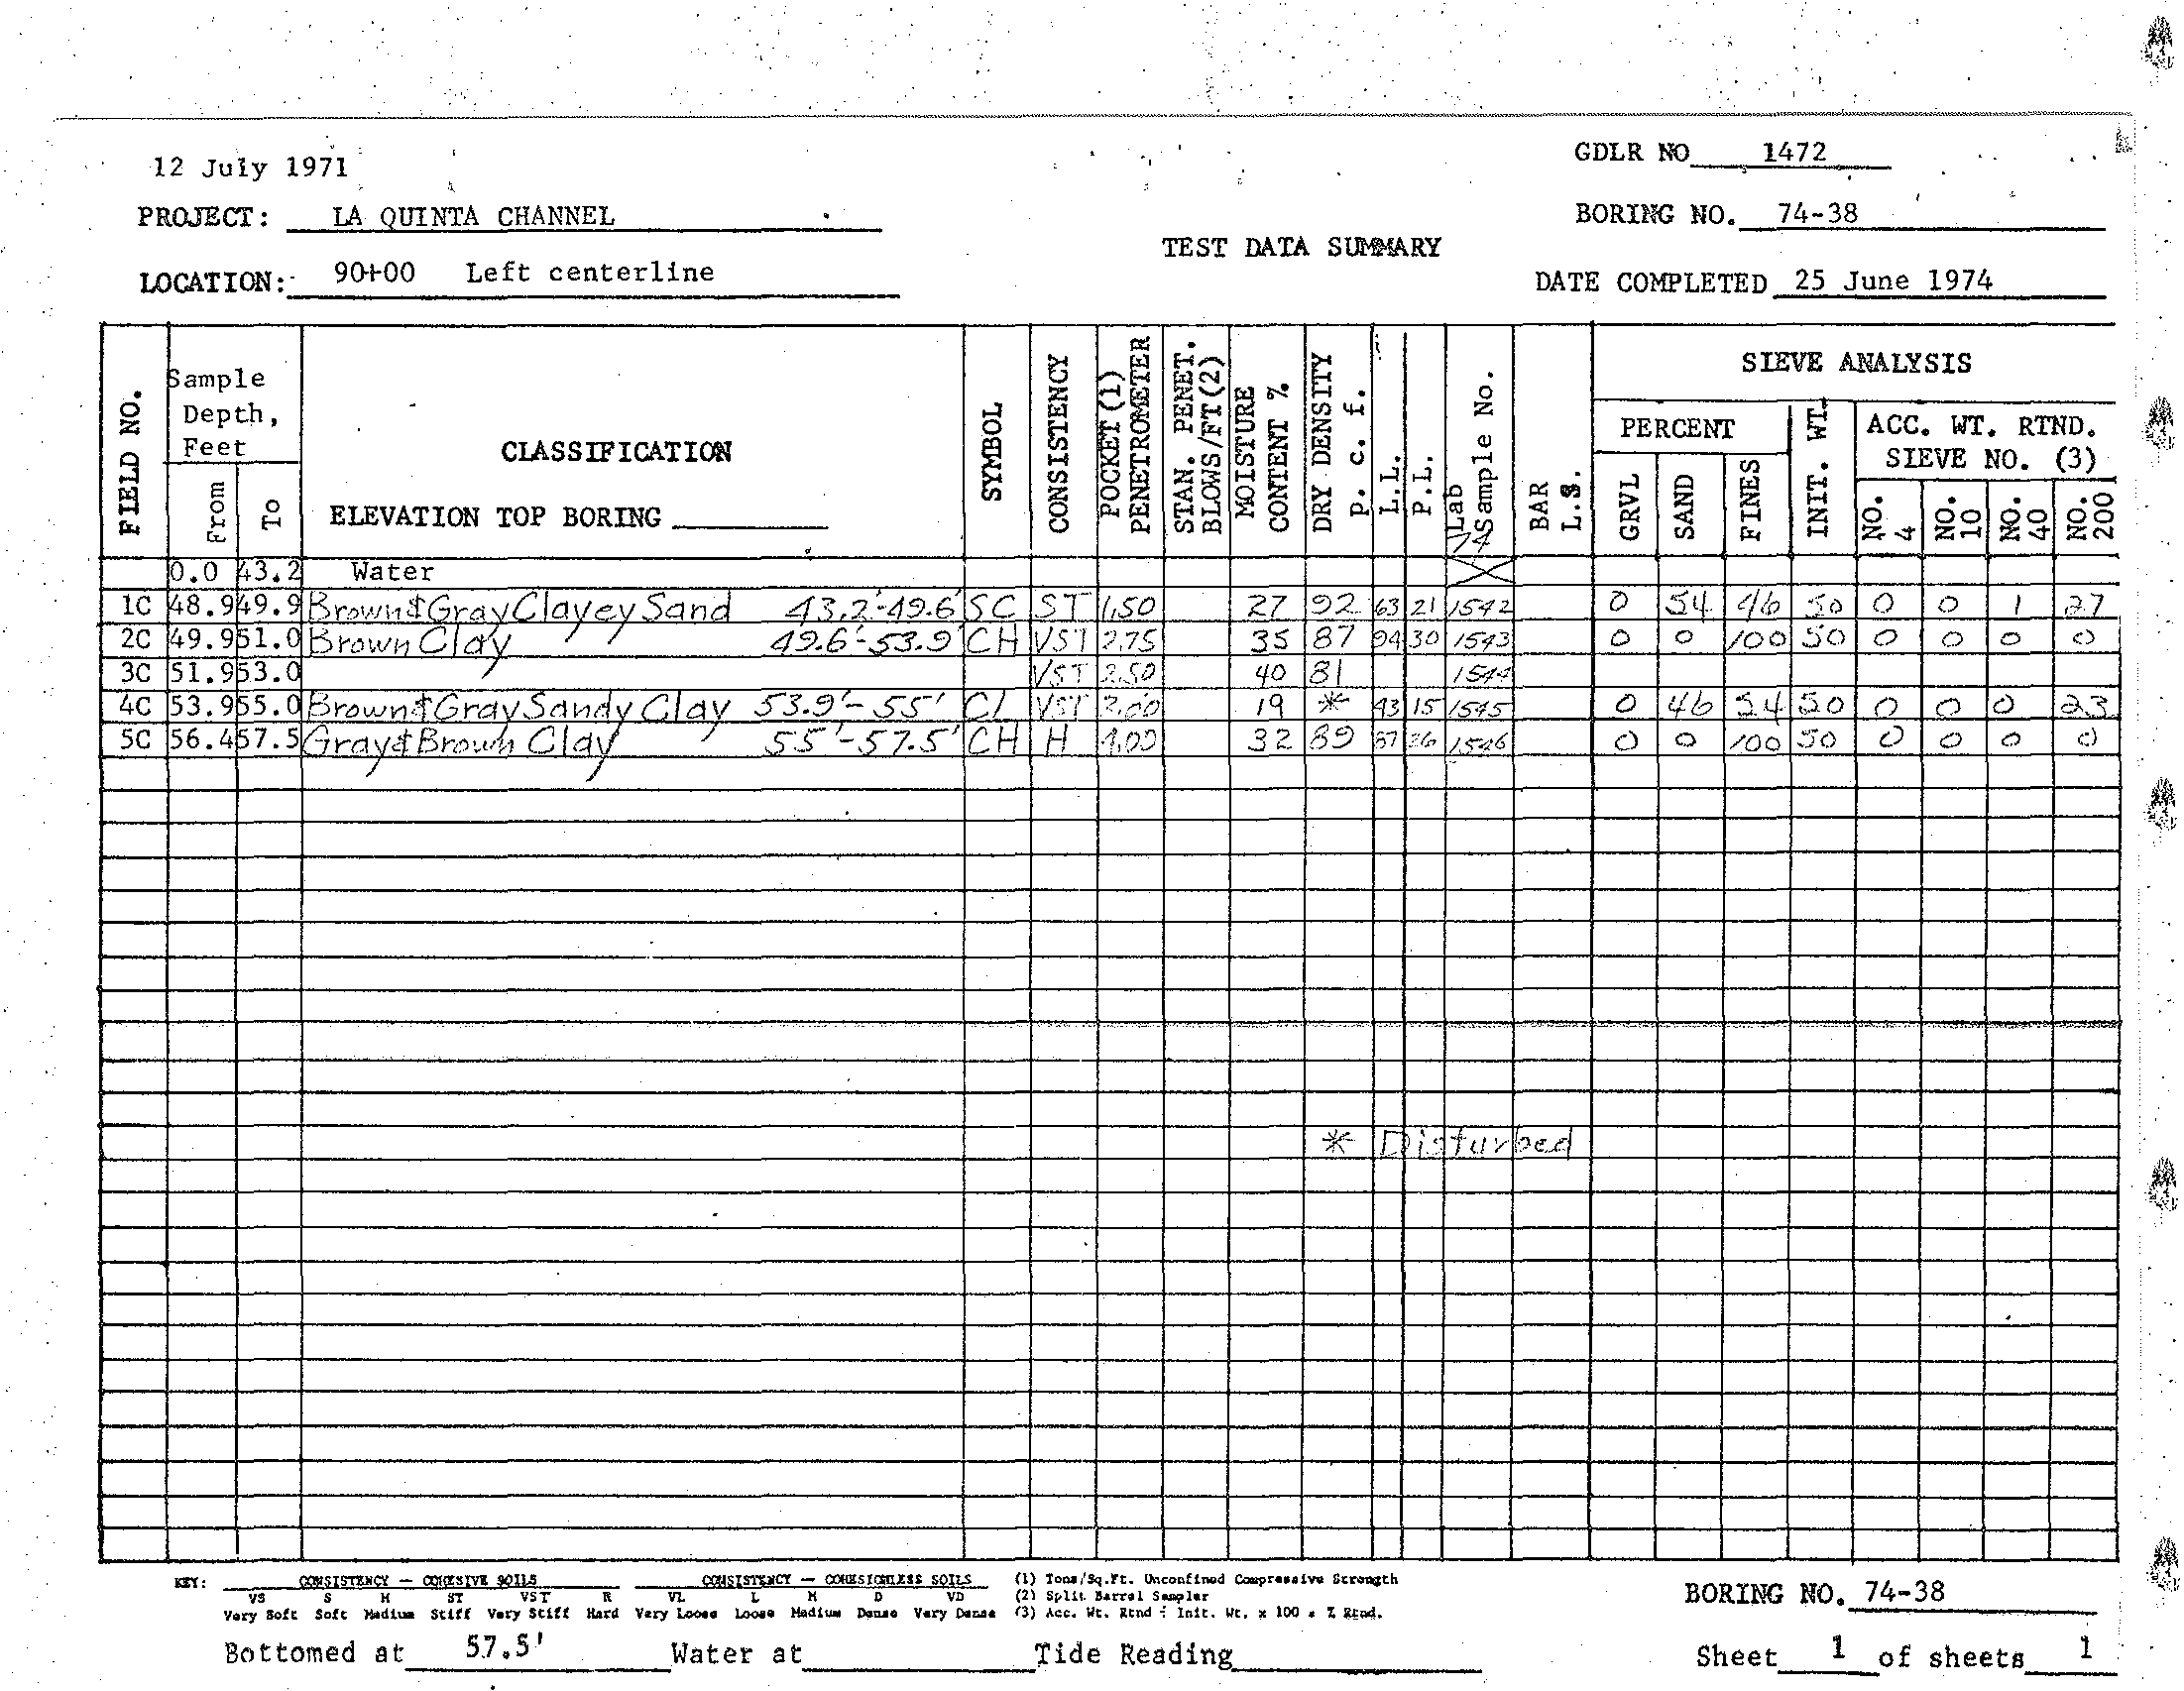 12 July 1971
GDLR NO 1472
PROJECT: LA QUINTA CHANNEL
BORING NO. 74-38
TEST DATA SUMMARY
LOCATION: 90+00 Left centerline
DATE COMPLETED 25 June 1974
FIELD NO.
Sample Depth, Feet
From
To
CLASSIFICATION
ELEVATION TOP BORING
SYMBOL
CONSISTENCY
POCKET (1) PENETROMETER
STAN. PENET. BLOWS/FT(2)
MOISTURE CONTENT %
DRY DENSITY p. c. f.
L.L.
P.L.
Lab Sample No.
74
BAR L.S.
SIEVE ANALYSIS
PERCENT
GRVL
SAND
FINES
INIT. WT.
ACC. WT. RTND.
SIEVE NO. (3)
NO. 4
NO. 10
NO. 40
NO. 200
0.0 43.2 Water
1C 48.9 49.9 Brown & Gray Clayey Sand 43.2'-49.6' SC ST 1.50 27 92 63 21 1542 0 54 46 50 0 0 1 27
2C 49.9 51.0 Brown Clay 49.6'-53.9' CH VST 2.75 35 87 94 30 1543 0 0 100 50 0 0 0 0
3C 51.9 53.0 VST 2.50 40 81 1544
4C 53.9 55.0 Brown & Gray Sandy Clay 53.9'-55' CL VST 2.00 19 * 43 15 1545 0 46 54 50 0 0 0 23
5C 56.4 57.5 Gray & Brown Clay 55'-57.5' CH H 4.00 32 89 87 26 1546 0 0 100 50 0 0 0 0
* Disturbed
KEY: CONSISTENCY - COHESIVE SOILS CONSISTENCY - COHESIONLESS SOILS (1) Tons/Sq.Ft. Unconfined Compressive Strength
VS S M ST VST H VL L M D VD (2) Split Barrel Sampler
Very Soft Soft Medium Stiff Very Stiff Hard Very Loose Loose Medium Dense Very Dense (3) Acc. Wt. Rtnd ÷ Init. Wt. x 100 = % Rtnd.
BORING NO. 74-38
Bottomed at 57.5' Water at Tide Reading
Sheet 1 of sheets 1